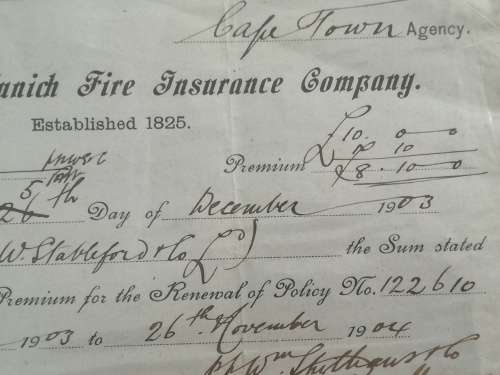 Cape Town Agency.
nnich Fire Insurance Company.
Established 1825.
£10. 0 0
10
Premium £8. 10 0
5th
26 Day of December 1903
W. Stableford & Co Ld the Sum stated
Premium for the Renewal of Policy No. 122610
1903 to 26th November 1904
pp Wm & Co